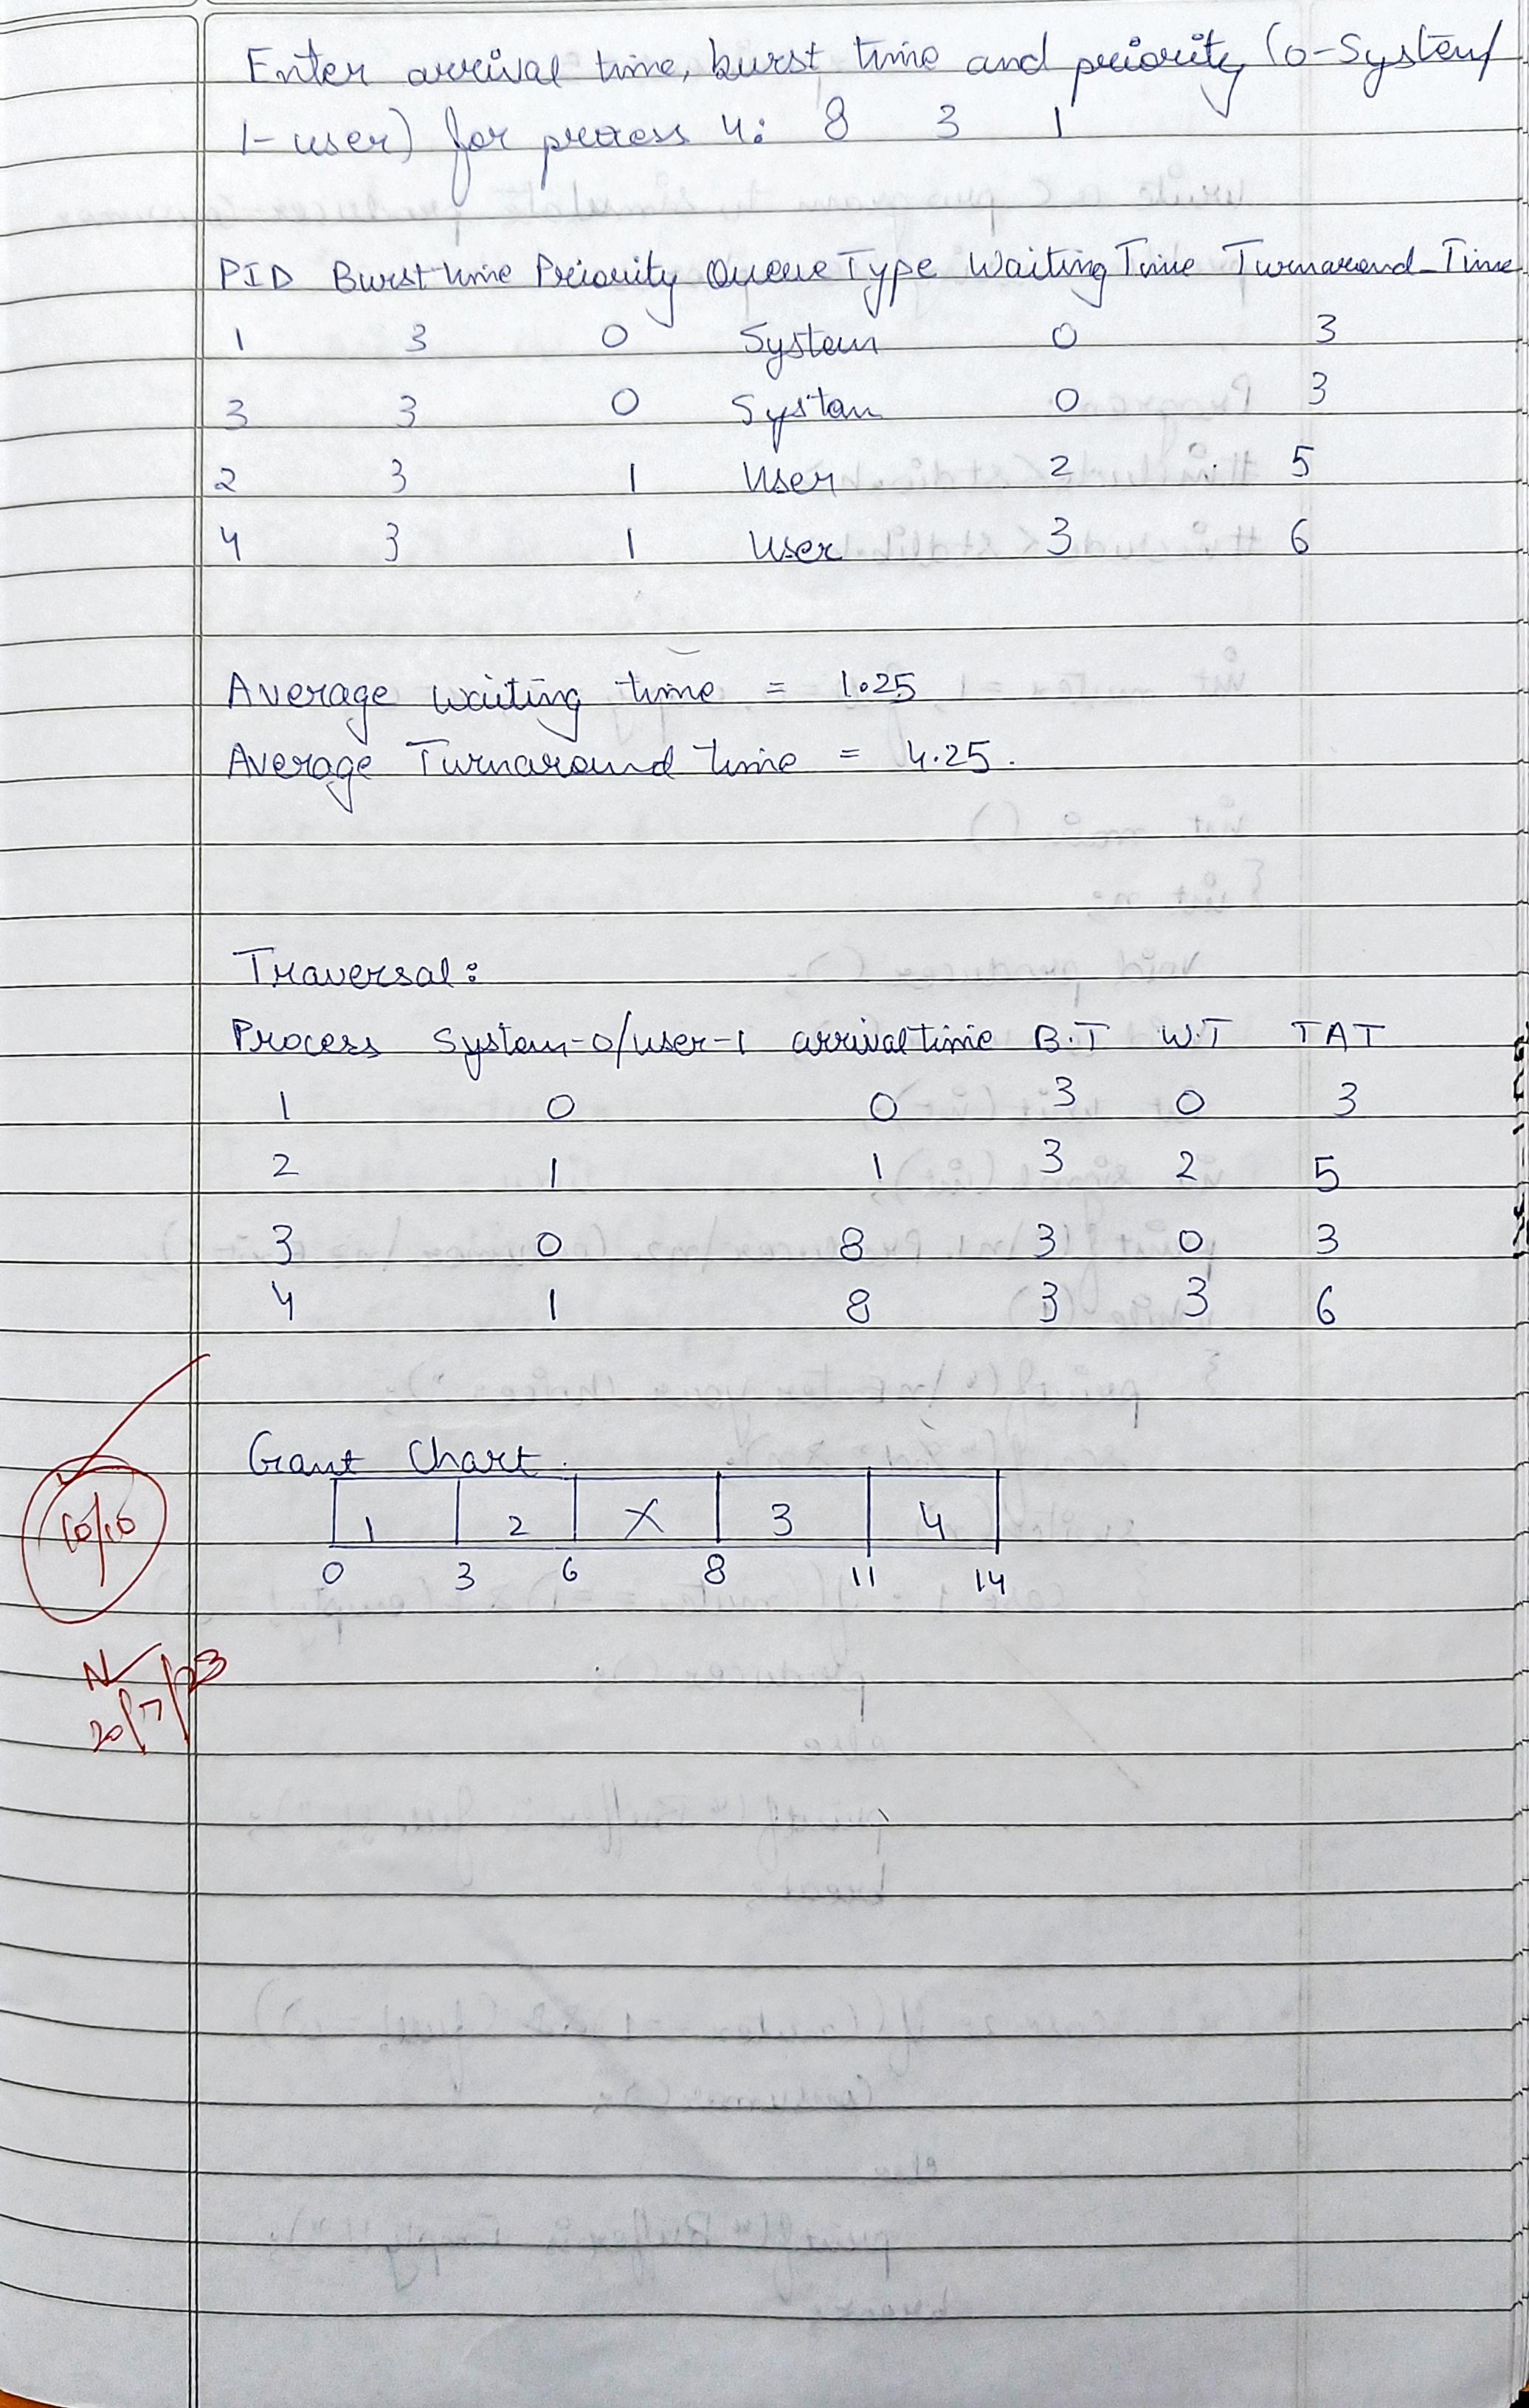 Enter arrival time, burst time and priority (0-System/
1-user) for process 4: 8 3 1
PID Burst time Priority Queue Type Waiting Time Turnaround_Time
1 3 0 System 0 3
3 3 0 System 0 3
2 3 1 User 2 5
4 3 1 User 3 6
Average waiting time = 1.25
Average Turnaround time = 4.25.
Traversal:
Process System-0/user-1 arrival time B.T W.T TAT
1 0 0 3 0 3
2 1 1 3 2 5
3 0 8 3 0 3
4 1 8 3 3 6
Gant Chart.
1 2 X 3 4
0 3 6 8 11 14
10/10
20/7/23